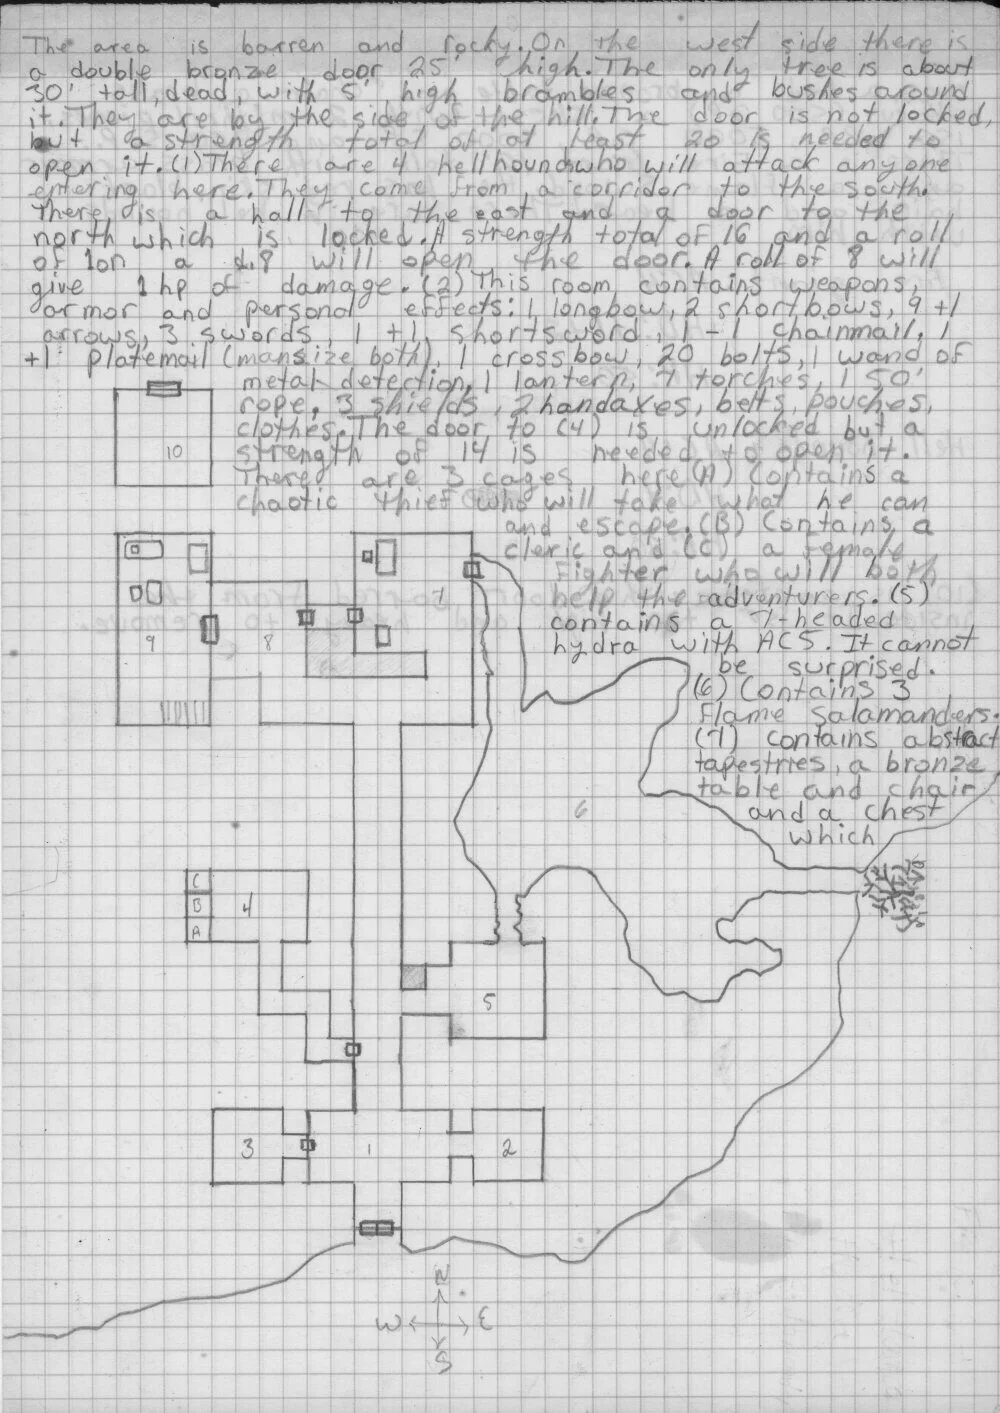 The area is barren and rocky. On the west side there is
a double bronze door 25' high. The only tree is about
30' tall, dead, with 5' high brambles and bushes around
it. They are by the side of the hill. The door is not locked,
but a strength total of at least 20 is needed to
open it. (1) There are 4 hellhounds who will attack anyone
entering here. They come from a corridor to the south.
There is a hall to the east and a door to the
north which is locked. A strength total of 16 and a roll
of 1 on a d.8 will open the door. A roll of 8 will
give 1 hp of damage. (2) This room contains weapons,
armor and personal effects: 1 longbow, 2 shortbows, 9 +1
arrows, 3 swords, 1 +1, shortsword, 1 -1 chainmail, 1
+1 platemail (mansize both), 1 crossbow, 20 bolts, 1 wand of
metal detection, 1 lantern, 7 torches, 1 50'
rope, 3 shields, 2 handaxes, belts, pouches,
clothes. The door to (4) is unlocked but a
strength of 14 is needed to open it.
There are 3 cages here (A) contains a
chaotic thief who will take what he can
and escape. (B) Contains a
cleric and (C) a female
Fighter who will both
help the adventurers. (5)
contains a 7-headed
hydra with AC5. It cannot
be surprised.
(6) Contains 3
Flame Salamanders.
(7) contains abstract
tapestries, a bronze
table and chair
and a chest
which
10
7
9
8
6
C
B
A
4
5
3
1
2
N
W
E
S